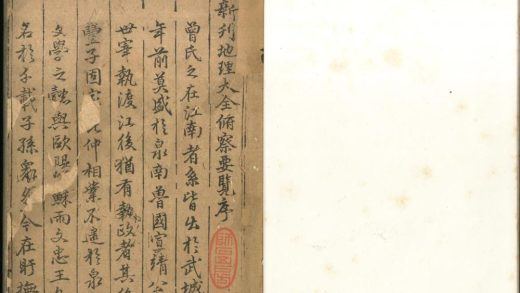 新刊地理大全俯察要覽序
曾氏之在江南者系皆出於武城
年前莫盛於泉南魯國宣靖公
世宰執渡江後猶有執政者其
子固 仲相業不遠於泉
文學之 與歐陽 蘇而文忠王
名於千載子孫 今在盱